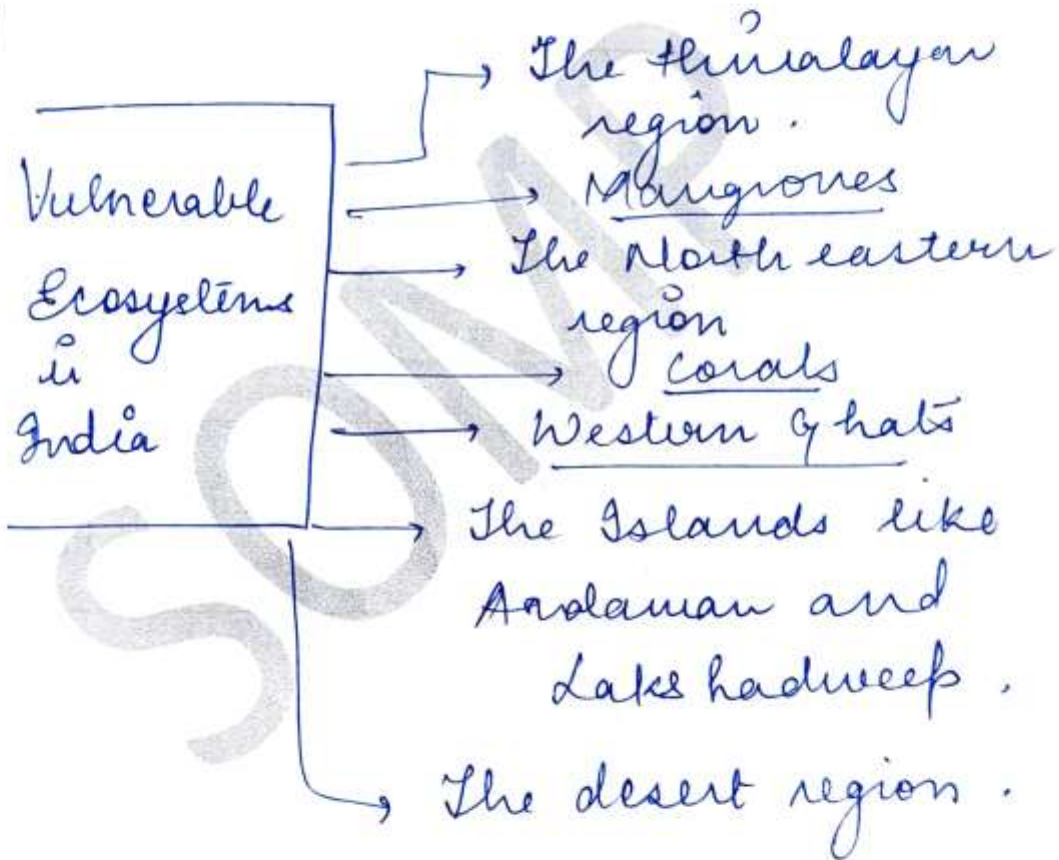 Vulnerable
Ecosystems
in
India
The Himalayan
region.
Mangroves
The North eastern
region
corals
Western Ghats
The Islands like
Andaman and
Lakshadweep.
The desert region.
SOMP